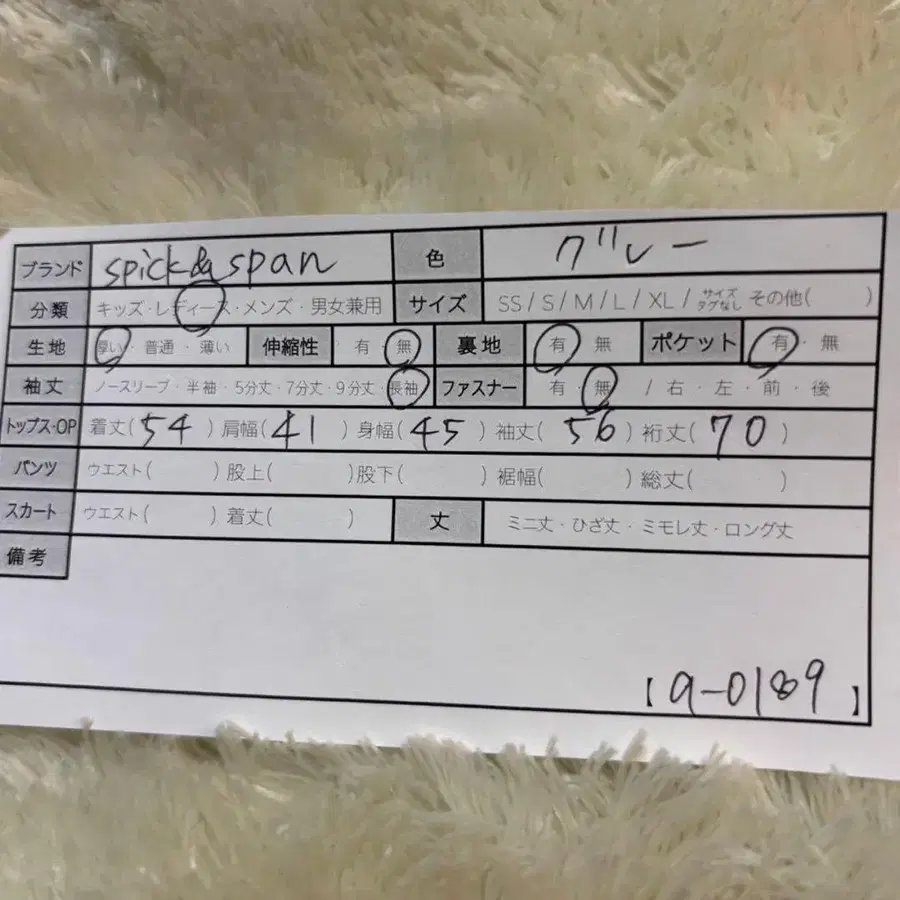 ブランド spick&span 色 グレー
分類 キッズ・レディース・メンズ・男女兼用 サイズ SS/S/M/L/XL/サイズタグなし その他( )
生地 厚い・普通・薄い 伸縮性 有・無 裏地 有・無 ポケット 有・無
袖丈 ノースリーブ・半袖・5分丈・7分丈・9分丈・長袖 ファスナー 有・無 / 右・左・前・後
トップス・OP 着丈(54) 肩幅(41) 身幅(45) 袖丈(56) 裄丈(70)
パンツ ウエスト( ) 股上( ) 股下( ) 裾幅( ) 総丈( )
スカート ウエスト( ) 着丈( ) 丈 ミニ丈・ひざ丈・ミモレ丈・ロング丈
備考
【a-0189】